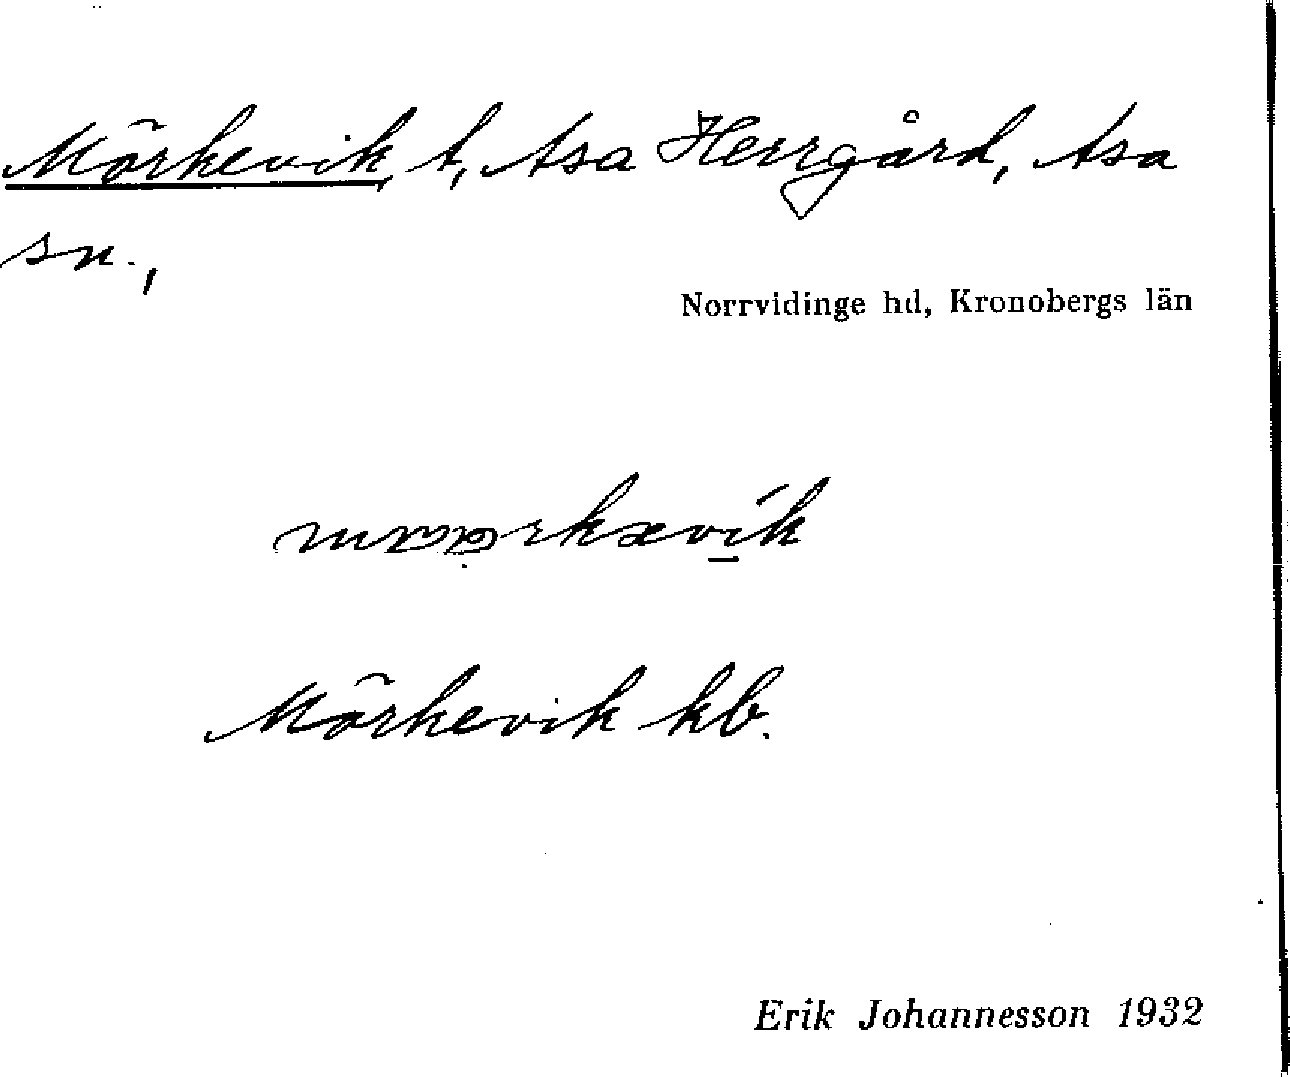 Mörkevik t, Asa Herrgård, Asa
sn.,
Norrvidinge hd, Kronobergs län
Mörkevik kb.
Erik Johannesson 1932